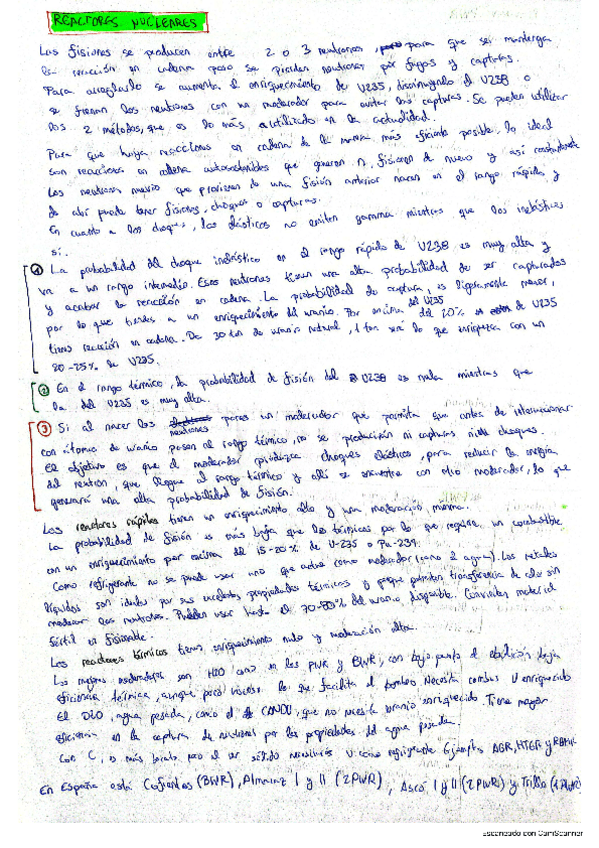 REACTORES NUCLEARES
Las fisiones se producen entre 2 o 3 neutrones, para que se mantenga
la reacción en cadena pero se pierden neutrones por fugas y capturas.
Para arreglarlo se aumenta el enriquecimiento de U235, disminuyendo el U238 o
se frenan los neutrones con un moderador para evitar las capturas. Se pueden utilizar
los 2 métodos, que es lo más utilizado en la actualidad.
Para que haya reacciones en cadena de la manera más eficiente posible, lo ideal
son reacciones en cadena autosostenibles que generen n, fisionen de nuevo y así
Los neutrones nuevos que provienen de una fisión anterior nacen en el rango rápido, y
de ahí puede tener fisiones, choques o capturas.
En cuanto a los choques, los elásticos no emiten gamma mientras que los inelásticos
sí.
① La probabilidad del choque inelástico en el rango rápido de U238 es muy alta y
va a un rango intermedio. Esos neutrones tienen una alta probabilidad de ser capturados
y acabar la reacción en cadena. La probabilidad de captura, es ligeramente menor,
por lo que tiendes a un enriquecimiento del uranio. Por encima del 20% de U235
tienes reacción en cadena. De 30 ton de uranio natural, 1 ton será lo que enriquezca con un
20-25% de U235.
② En el rango térmico, la probabilidad de fisión del U238 es nula mientras que
la del U235 es muy alta.
③ Si al nacer los neutrones pones un moderador que permita que antes de interaccionar
con átomo de uranio pasen al rango térmico, no se producirán ni capturas ni choques.
El objetivo es que el moderador produzca choques elásticos, para reducir la energía
del neutron, que llegue al rango térmico y allí se encuentre con otro moderador, lo que
generará una alta probabilidad de fisión.
Los reactores rápidos tienen un enriquecimiento alto y una moderación mínima.
La probabilidad de fisión es más baja que los térmicos por lo que requiere un combustible
con un enriquecimiento por encima del 15-20% de U-235 o Pu-239.
Como refrigerante no se puede usar uno que actúe como moderador (como el agua). Los metales
líquidos son ideales por sus excelentes propiedades térmicas y porque permiten transferencia de calor sin
moderar los neutrones. Pueden usar hasta el 70-80% del uranio disponible. Convierten material
fértil en fisionable.
Los reactores térmicos tienen enriquecimiento nulo y moderación alta.
Los mejores moderadores son H2O como en los PWR y BWR, con bajo punto de ebullición baja
eficiencia térmica, aunque poco viscoso lo que facilita el bombeo. Necesita combus U enriquecido
El D2O, agua pesada, como el de CANDU, que no necesita uranio enriquecido. Tiene mayor
eficiencia en la captura de neutrones por las propiedades del agua pesada.
Con C, es más barato pero al ser sólido necesitarás como refrigerante Ejemplos AGR, HTGR y RBMK
En España está Cofrentes (BWR), Almaraz I y II (2 PWR), Ascó I y II (2 PWR) y Trillo (1 PWR)
Escaneado con CamScanner